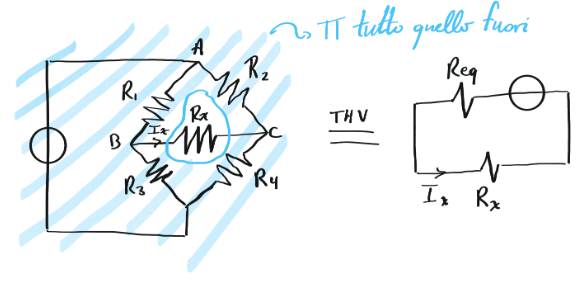 π tutto quello fuori
A
R1
R2
Rx
Ix
B
C
R3
R4
THV
Req
Ix
Rx